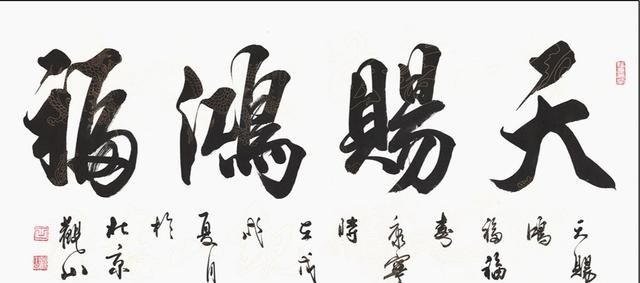 天賜鴻福
天賜
鴻
福福
壽
康寧
時
在戊
戌
夏月
於
北京
觀山